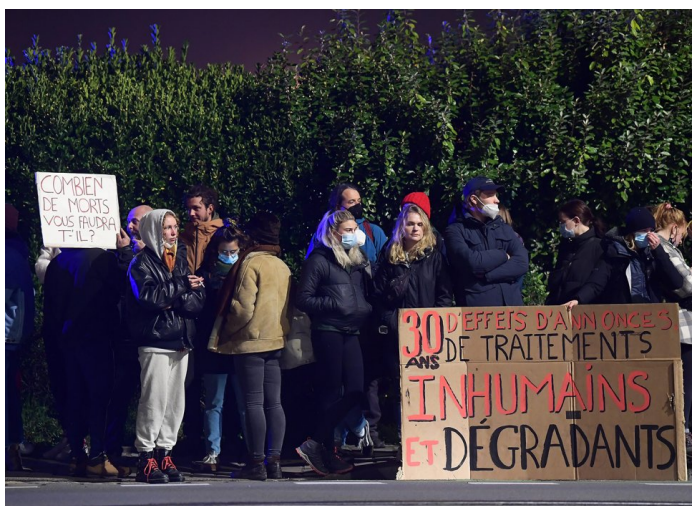 COMBIEN
DE MORTS
VOUS FAUDRA
T-IL ?
30 D'EFFETS D'ANNONCES
ANS DE TRAITEMENTS
INHUMAINS
ET DÉGRADANTS